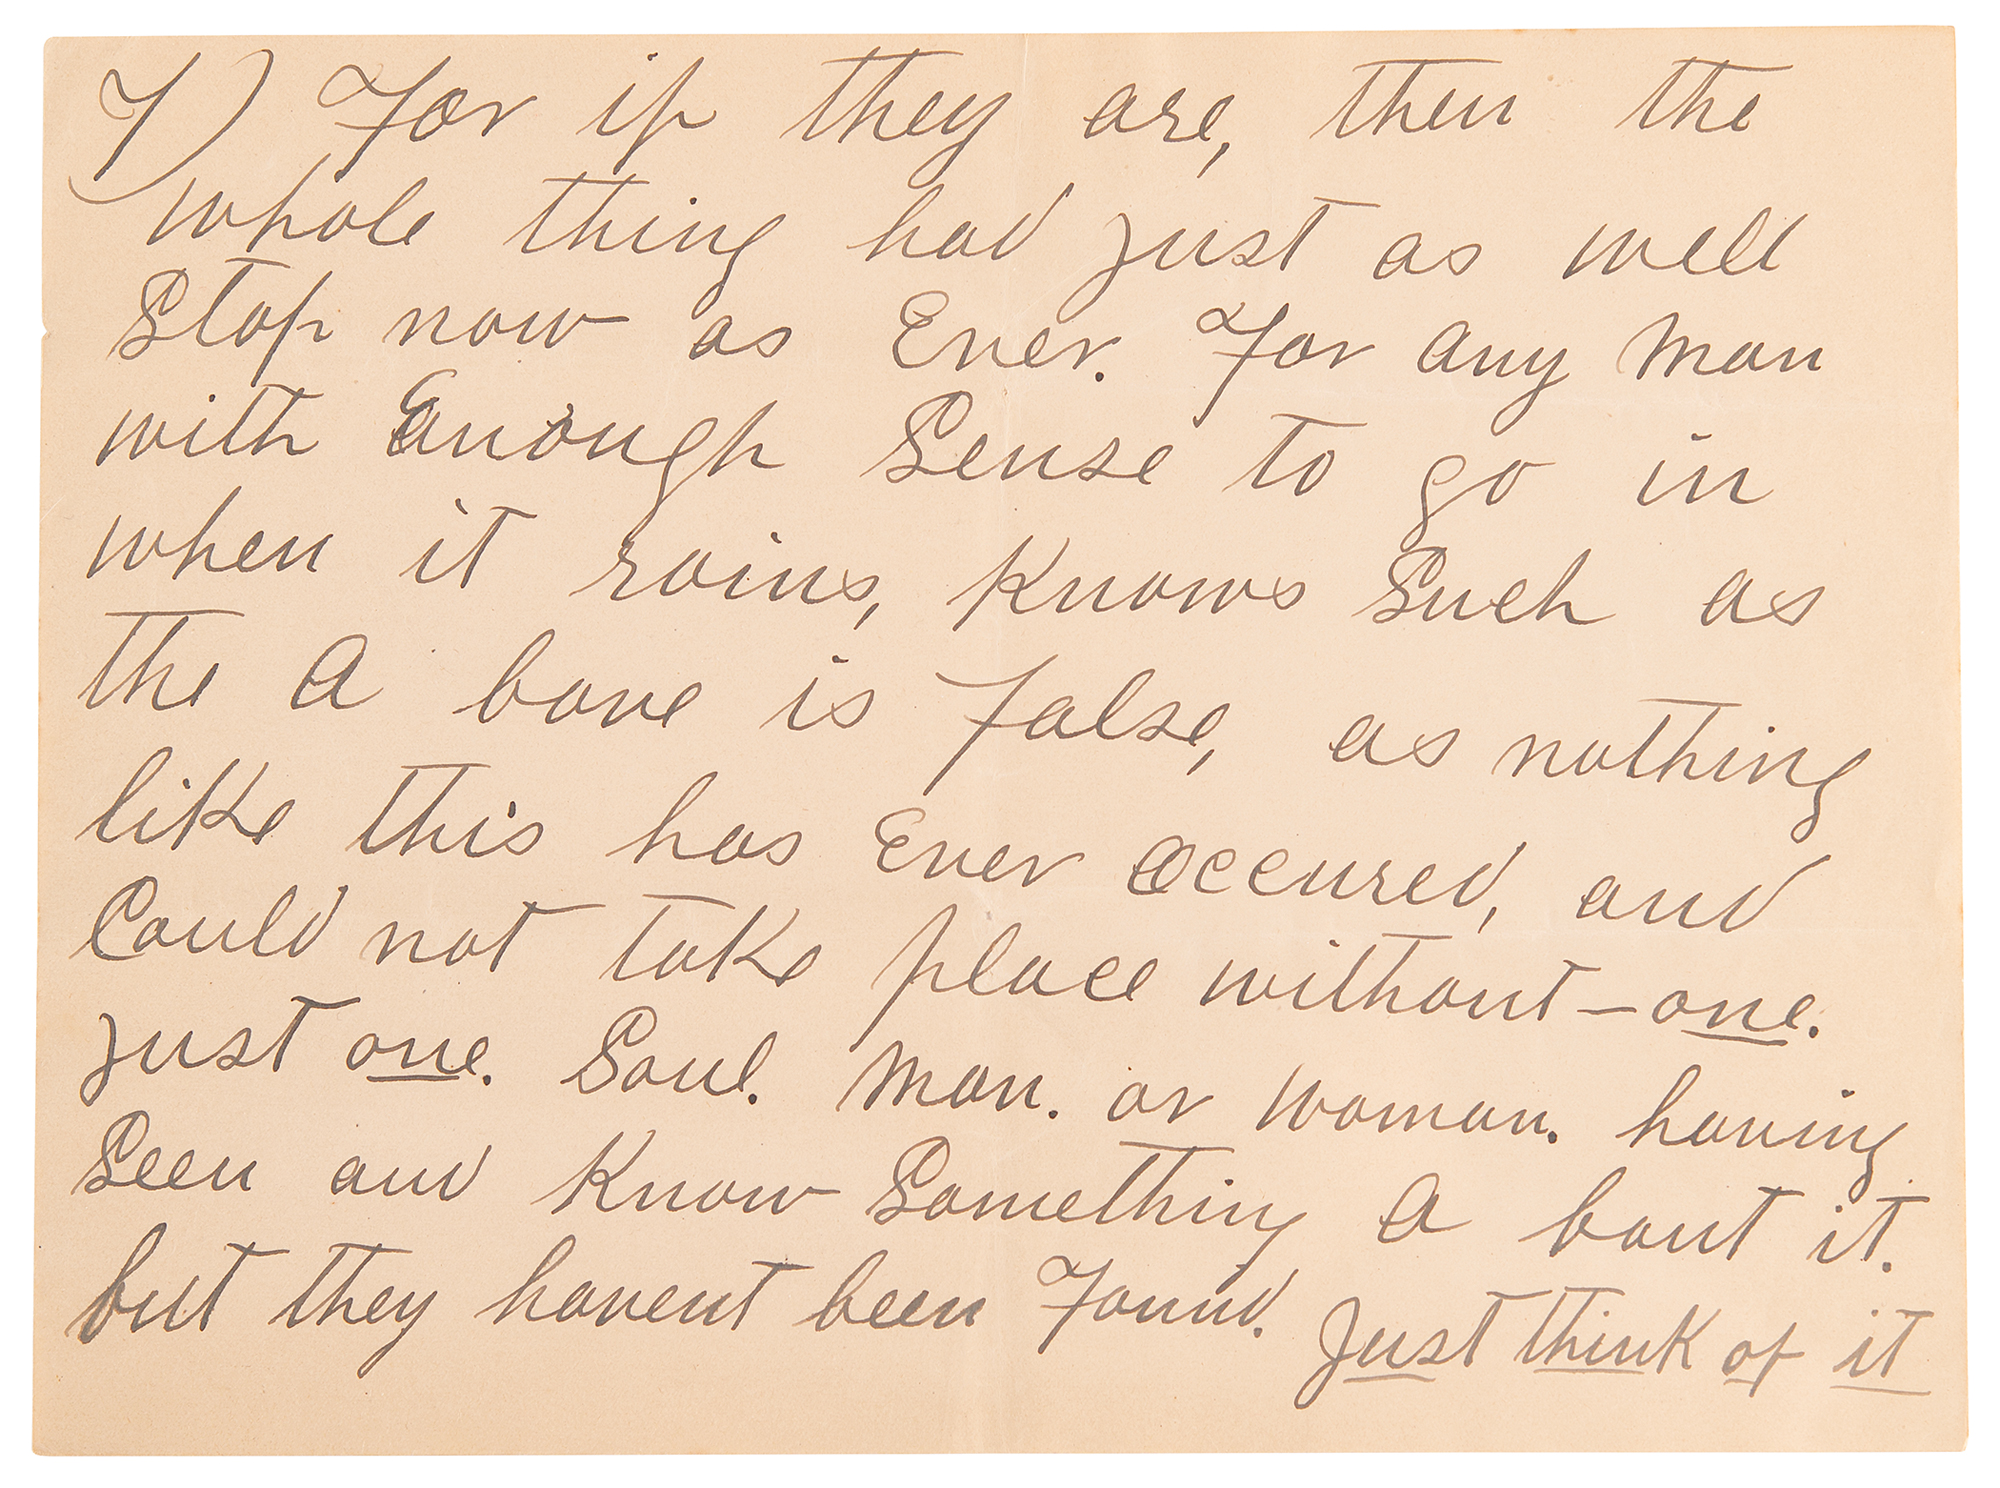 7) For if they are, then the
whole thing had just as well
Stop now as Ever. For any man
with Enough Sense to go in
when it rains, Knows Such as
the A bove is False, as nothing
like this has Ever occured, and
Could not take place without — one.
just one. Soul. man. or woman. having
Seen and Know Something A bout it.
but they havent been Found. Just think of it